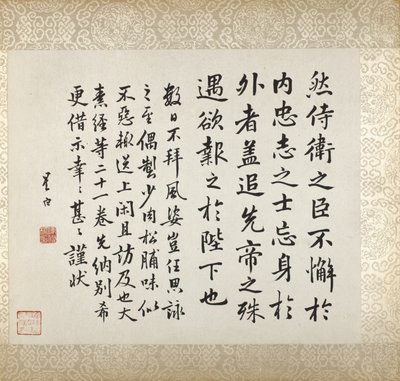 然侍衛之臣不懈於
内忠志之士忘身於
外者盖追先帝之殊
遇欲報之於陛下也
數日不拜風姿豈任思詠
之至偶製少肉松脯味似
不惡輙送上闲且訪及也大
素經等二十一卷先納别希
更借示幸〻甚〻謹狀